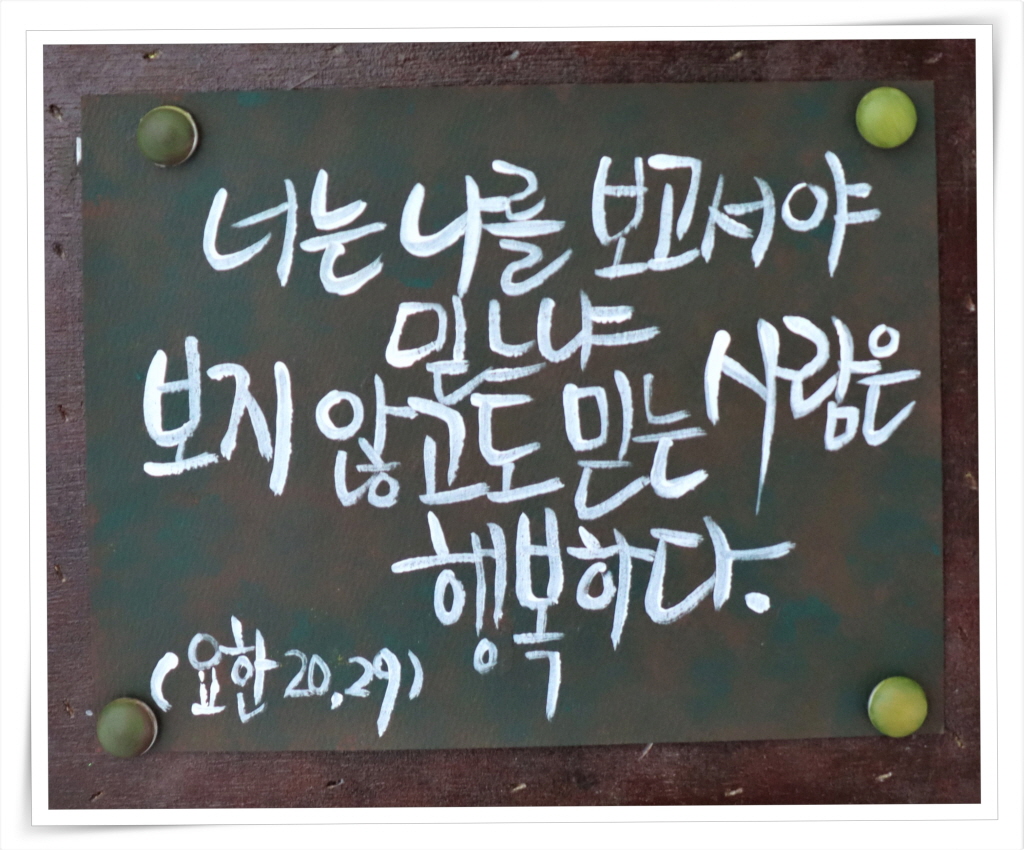 너는 나를 보고서야
믿느냐
보지 않고도 믿는 사람은
행복하다.
(요한 20,29)